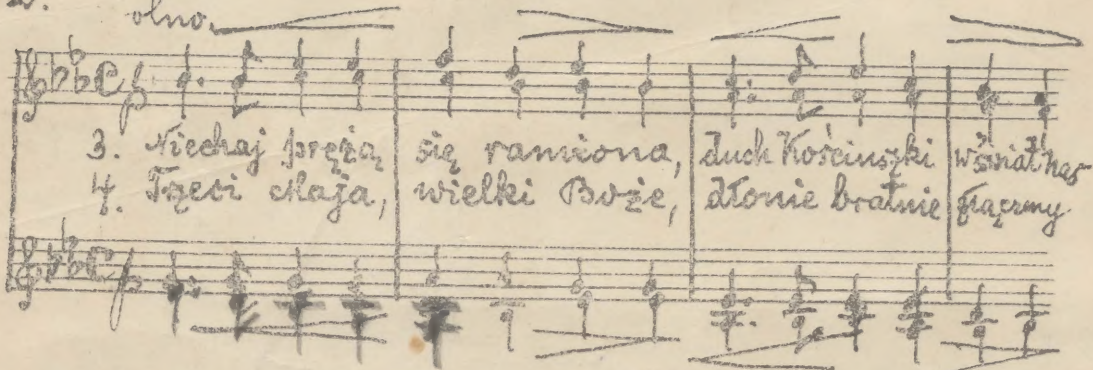 olno.
3. Niechaj prężą się ramiona, duch Kościuszki w świat nas
4. Trzeci Maja, wielki Boże, dłonie bratnie złączmy